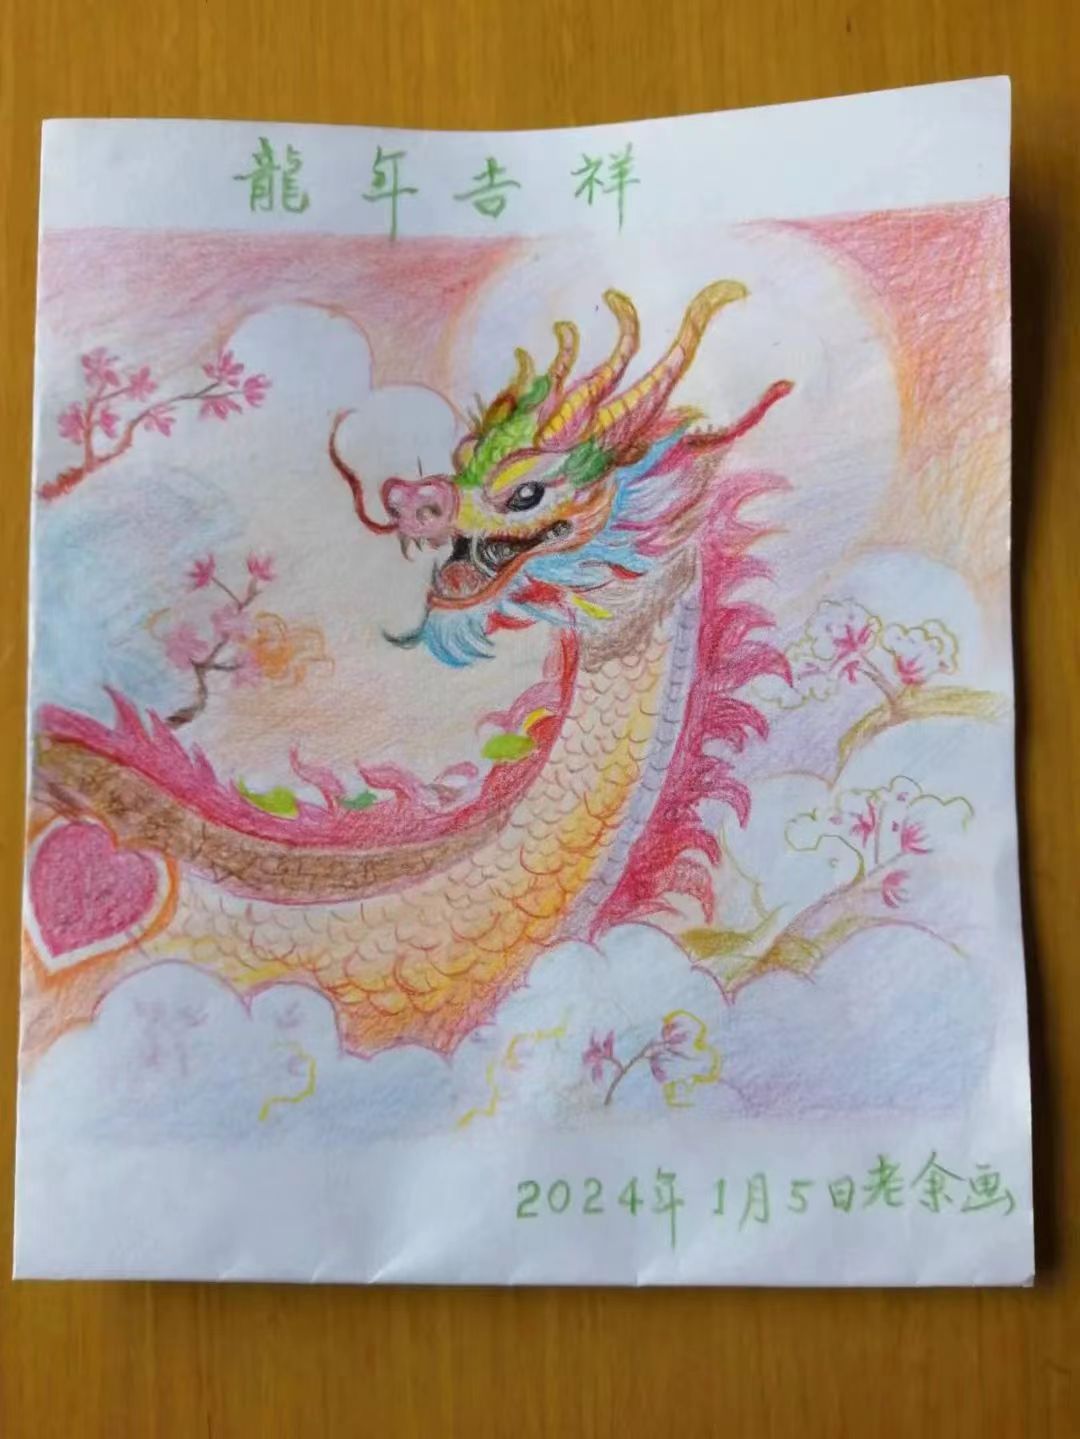 龍年吉祥
2024年1月5日老余画